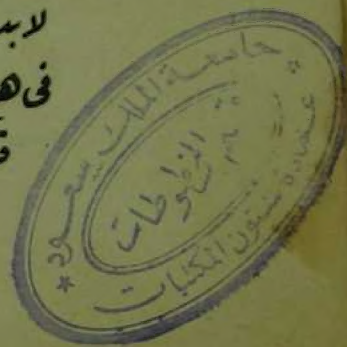 لابد
فى ه
ق
جامعة الملك سعود
قسم المخطوطات
عمادة شئون المكتبات